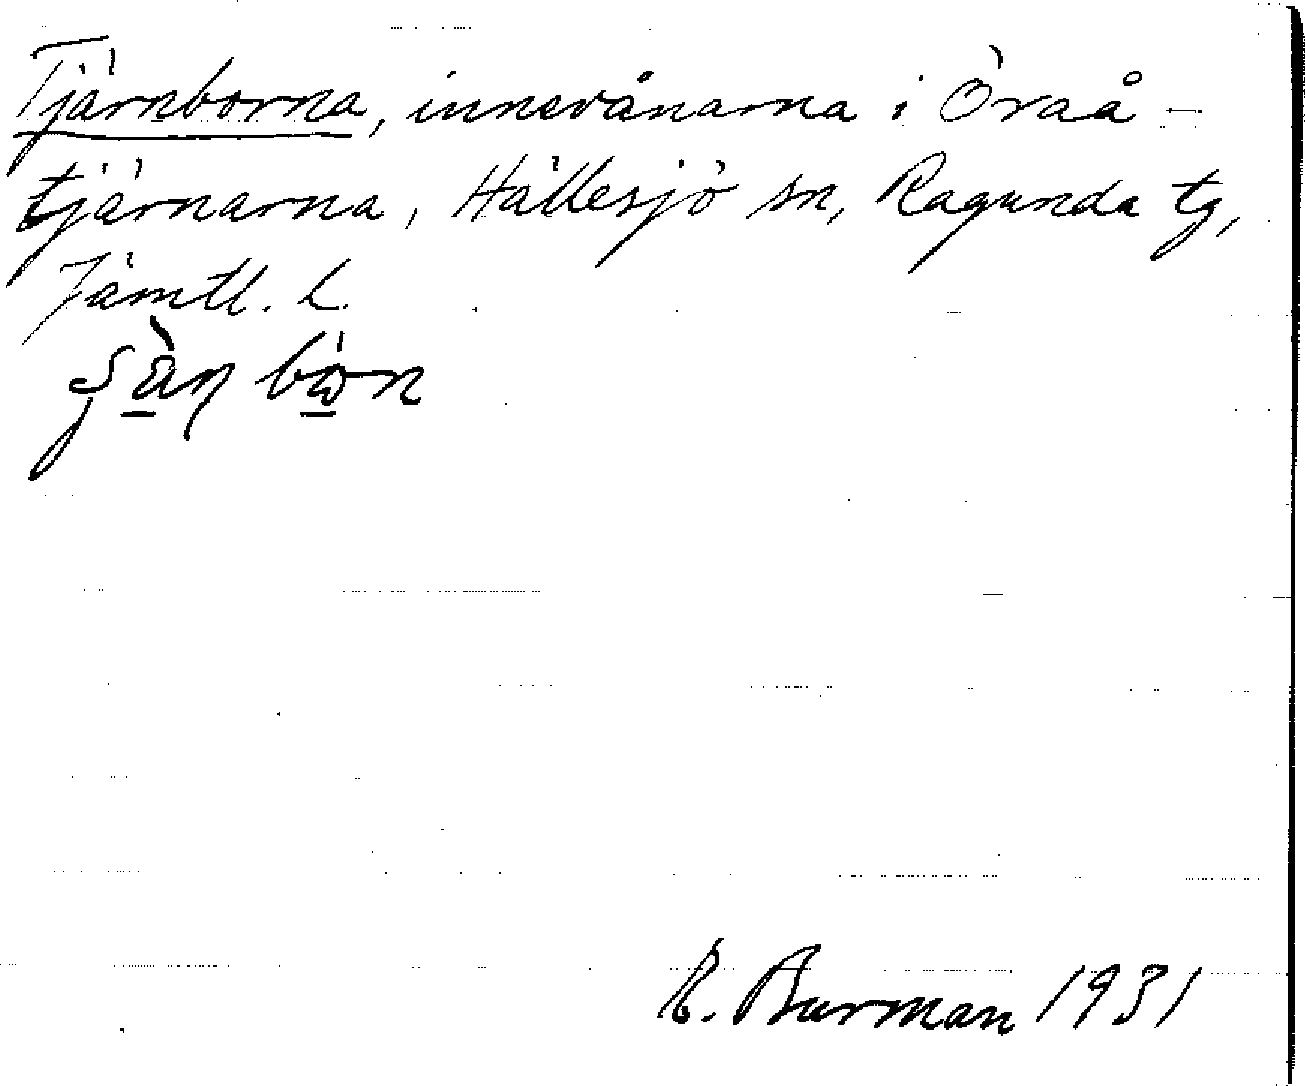 Tjärnborna, innevånarna i Öraå-
tjärnarna, Hällesjö sn, Ragunda tg,
Jämtl. L.
R. Burman 1931